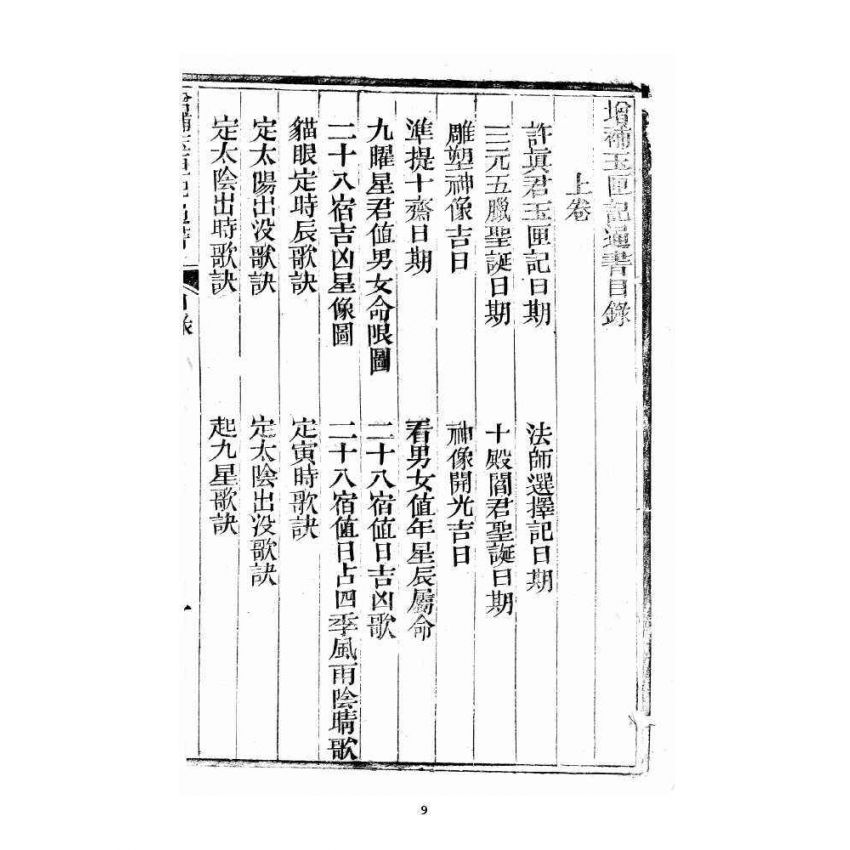 增補玉匣記通書目錄
上卷
許眞君玉匣記日期 法師選擇記日期
三元五臘聖誕日期 十殿閻君聖誕日期
雕塑神像吉日 神像開光吉日
準提十齋日期 看男女值年星辰屬命
九曜星君值男女命限圖 二十八宿值日吉凶歌
二十八宿吉凶星像圖 二十八宿值日占四季風雨陰晴歌
貓眼定時辰歌訣 定寅時歌訣
定太陽出没歌訣 定太陰出没歌訣
定太陰出時歌訣 起九星歌訣
目錄
一
9